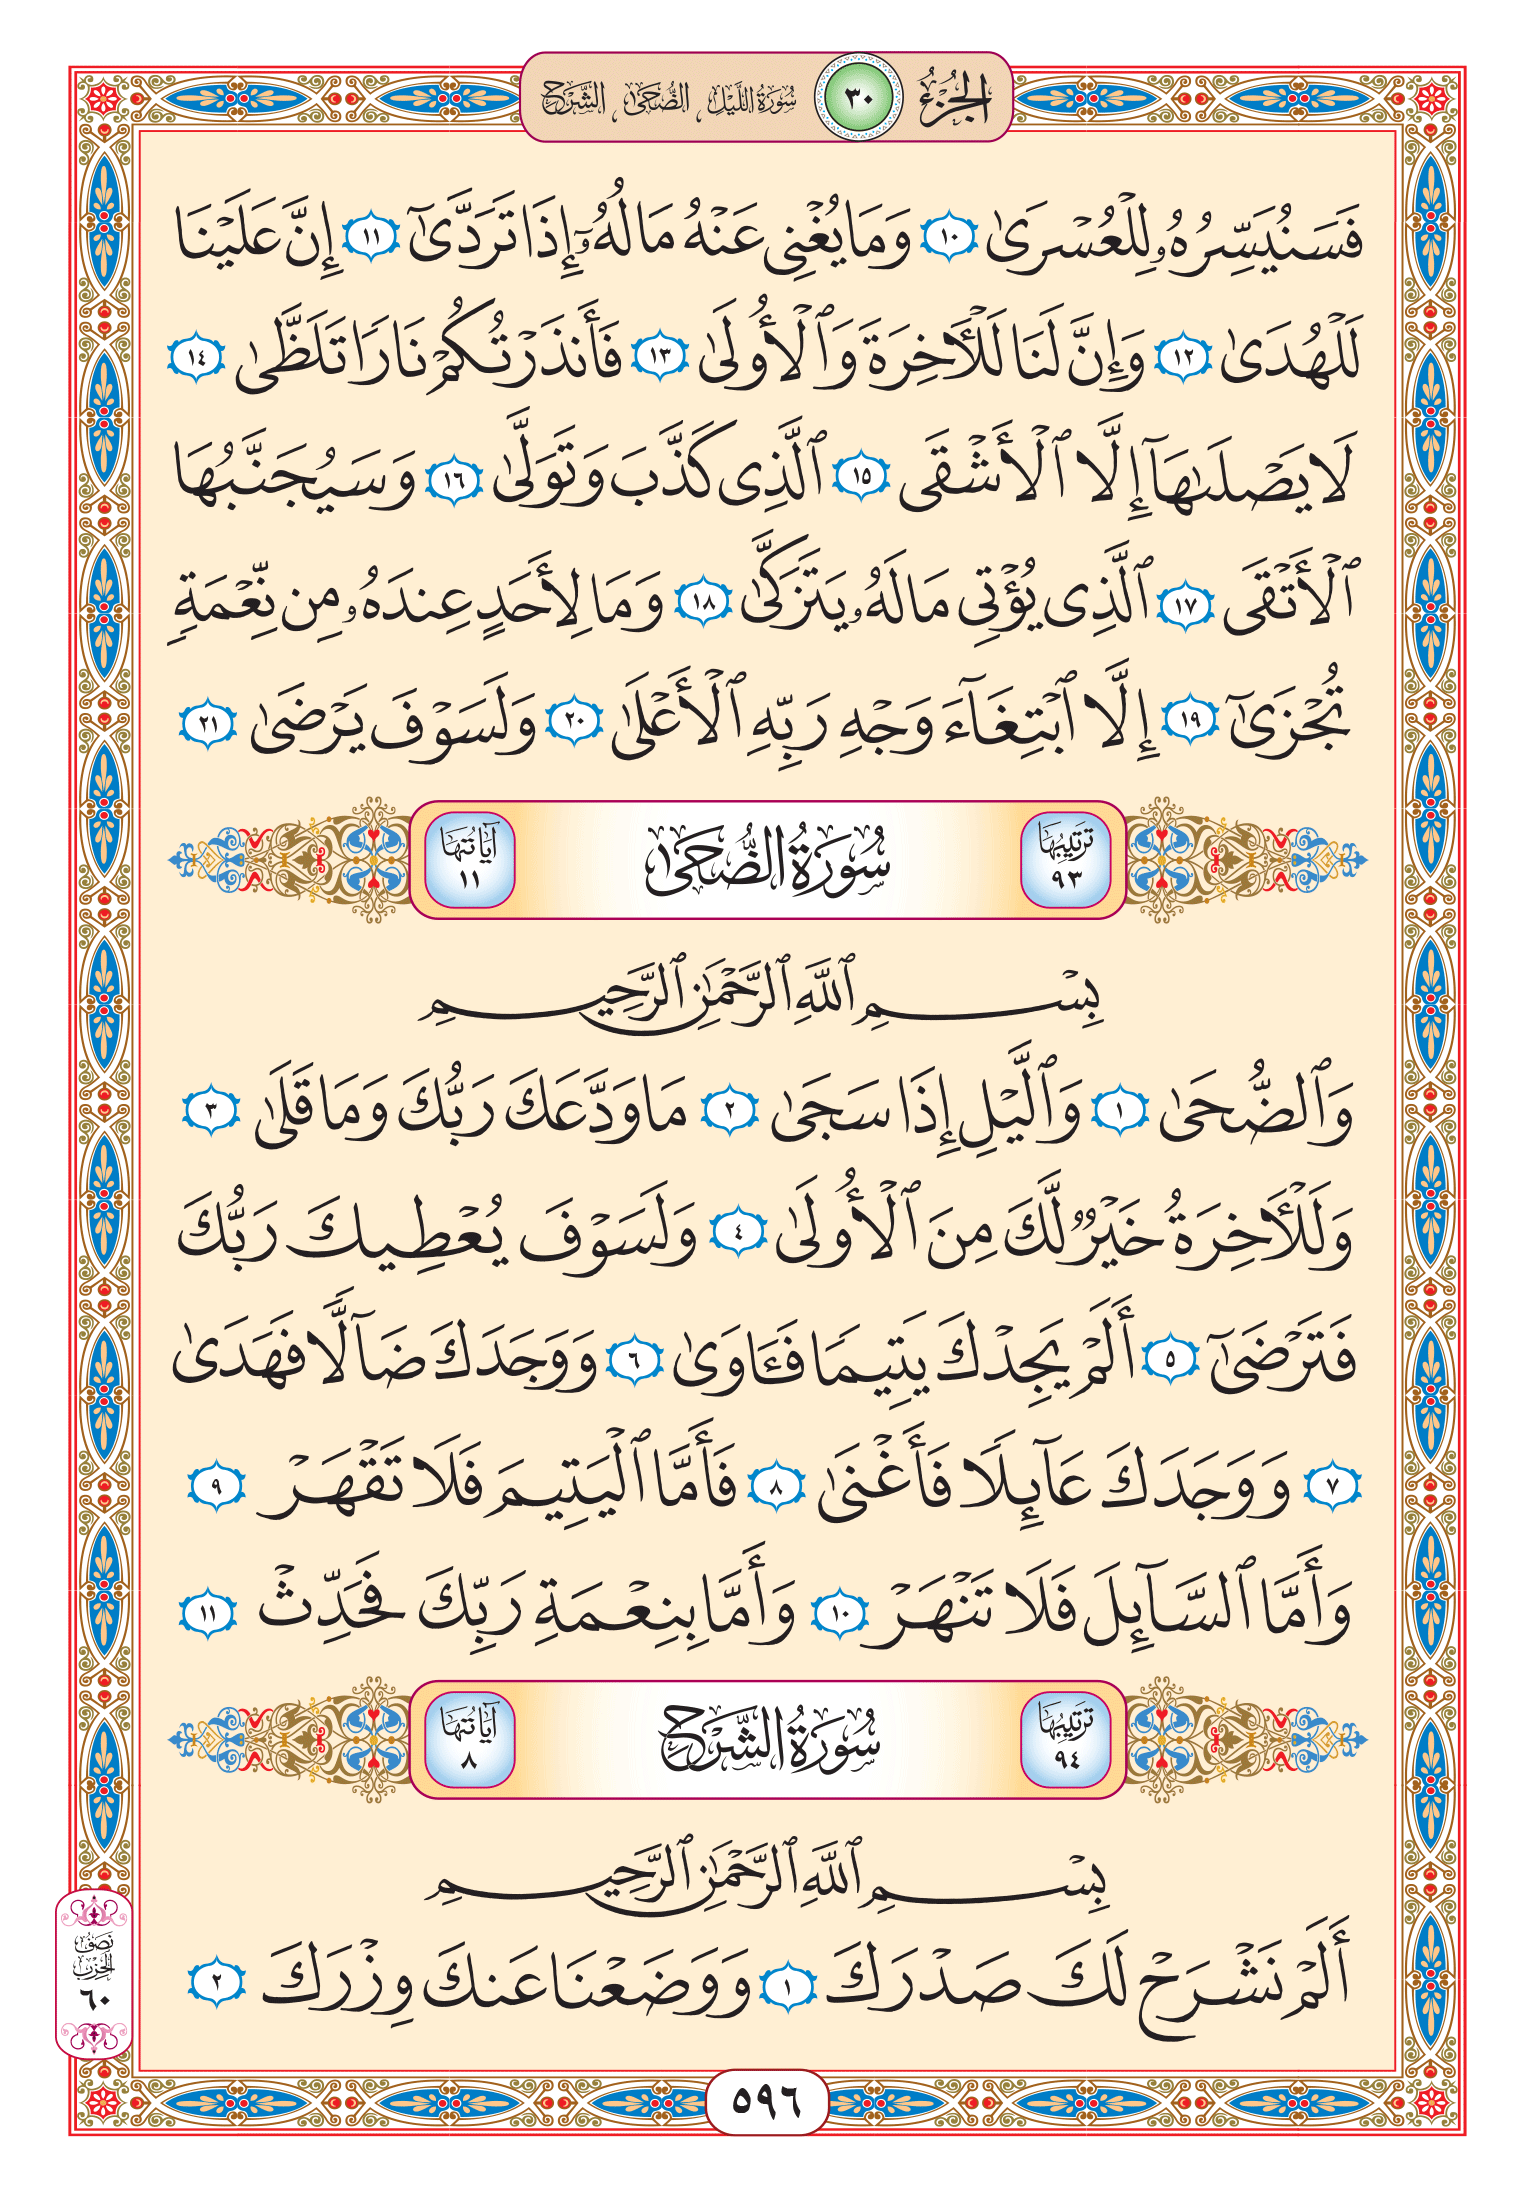 الجزء ٣٠ سورة الليل ، الضحى ، الشرح
فَسَنُيَسِّرُهُۥ لِلْعُسْرَىٰ ١٠ وَمَا يُغْنِى عَنْهُ مَالُهُۥٓ إِذَا تَرَدَّىٰٓ ١١ إِنَّ عَلَيْنَا
لَلْهُدَىٰ ١٢ وَإِنَّ لَنَا لَلْأَخِرَةَ وَٱلْأُولَىٰ ١٣ فَأَنذَرْتُكُمْ نَارًا تَلَظَّىٰ ١٤
لَا يَصْلَىٰهَآ إِلَّا ٱلْأَشْقَى ١٥ ٱلَّذِى كَذَّبَ وَتَوَلَّىٰ ١٦ وَسَيُجَنَّبُهَا
ٱلْأَتْقَى ١٧ ٱلَّذِى يُؤْتِى مَالَهُۥ يَتَزَكَّىٰ ١٨ وَمَا لِأَحَدٍ عِندَهُۥ مِن نِّعْمَةٍ
تُجْزَىٰٓ ١٩ إِلَّا ٱبْتِغَآءَ وَجْهِ رَبِّهِ ٱلْأَعْلَىٰ ٢٠ وَلَسَوْفَ يَرْضَىٰ ٢١
ترتيبها ٩٣ سُورَةُ الضُّحَىٰ آياتها ١١
بِسْمِ ٱللَّهِ ٱلرَّحْمَٰنِ ٱلرَّحِيمِ
وَٱلضُّحَىٰ ١ وَٱلَّيْلِ إِذَا سَجَىٰ ٢ مَا وَدَّعَكَ رَبُّكَ وَمَا قَلَىٰ ٣
وَلَلْأَخِرَةُ خَيْرٌ لَّكَ مِنَ ٱلْأُولَىٰ ٤ وَلَسَوْفَ يُعْطِيكَ رَبُّكَ
فَتَرْضَىٰٓ ٥ أَلَمْ يَجِدْكَ يَتِيمًا فَـَٔاوَىٰ ٦ وَوَجَدَكَ ضَآلًّا فَهَدَىٰ
٧ وَوَجَدَكَ عَآئِلًا فَأَغْنَىٰ ٨ فَأَمَّا ٱلْيَتِيمَ فَلَا تَقْهَرْ ٩
وَأَمَّا ٱلسَّآئِلَ فَلَا تَنْهَرْ ١٠ وَأَمَّا بِنِعْمَةِ رَبِّكَ فَحَدِّثْ ١١
ترتيبها ٩٤ سُورَةُ الشَّرْحِ آياتها ٨
بِسْمِ ٱللَّهِ ٱلرَّحْمَٰنِ ٱلرَّحِيمِ
أَلَمْ نَشْرَحْ لَكَ صَدْرَكَ ١ وَوَضَعْنَا عَنكَ وِزْرَكَ ٢
نصف
الحزب
٦٠
٥٩٦